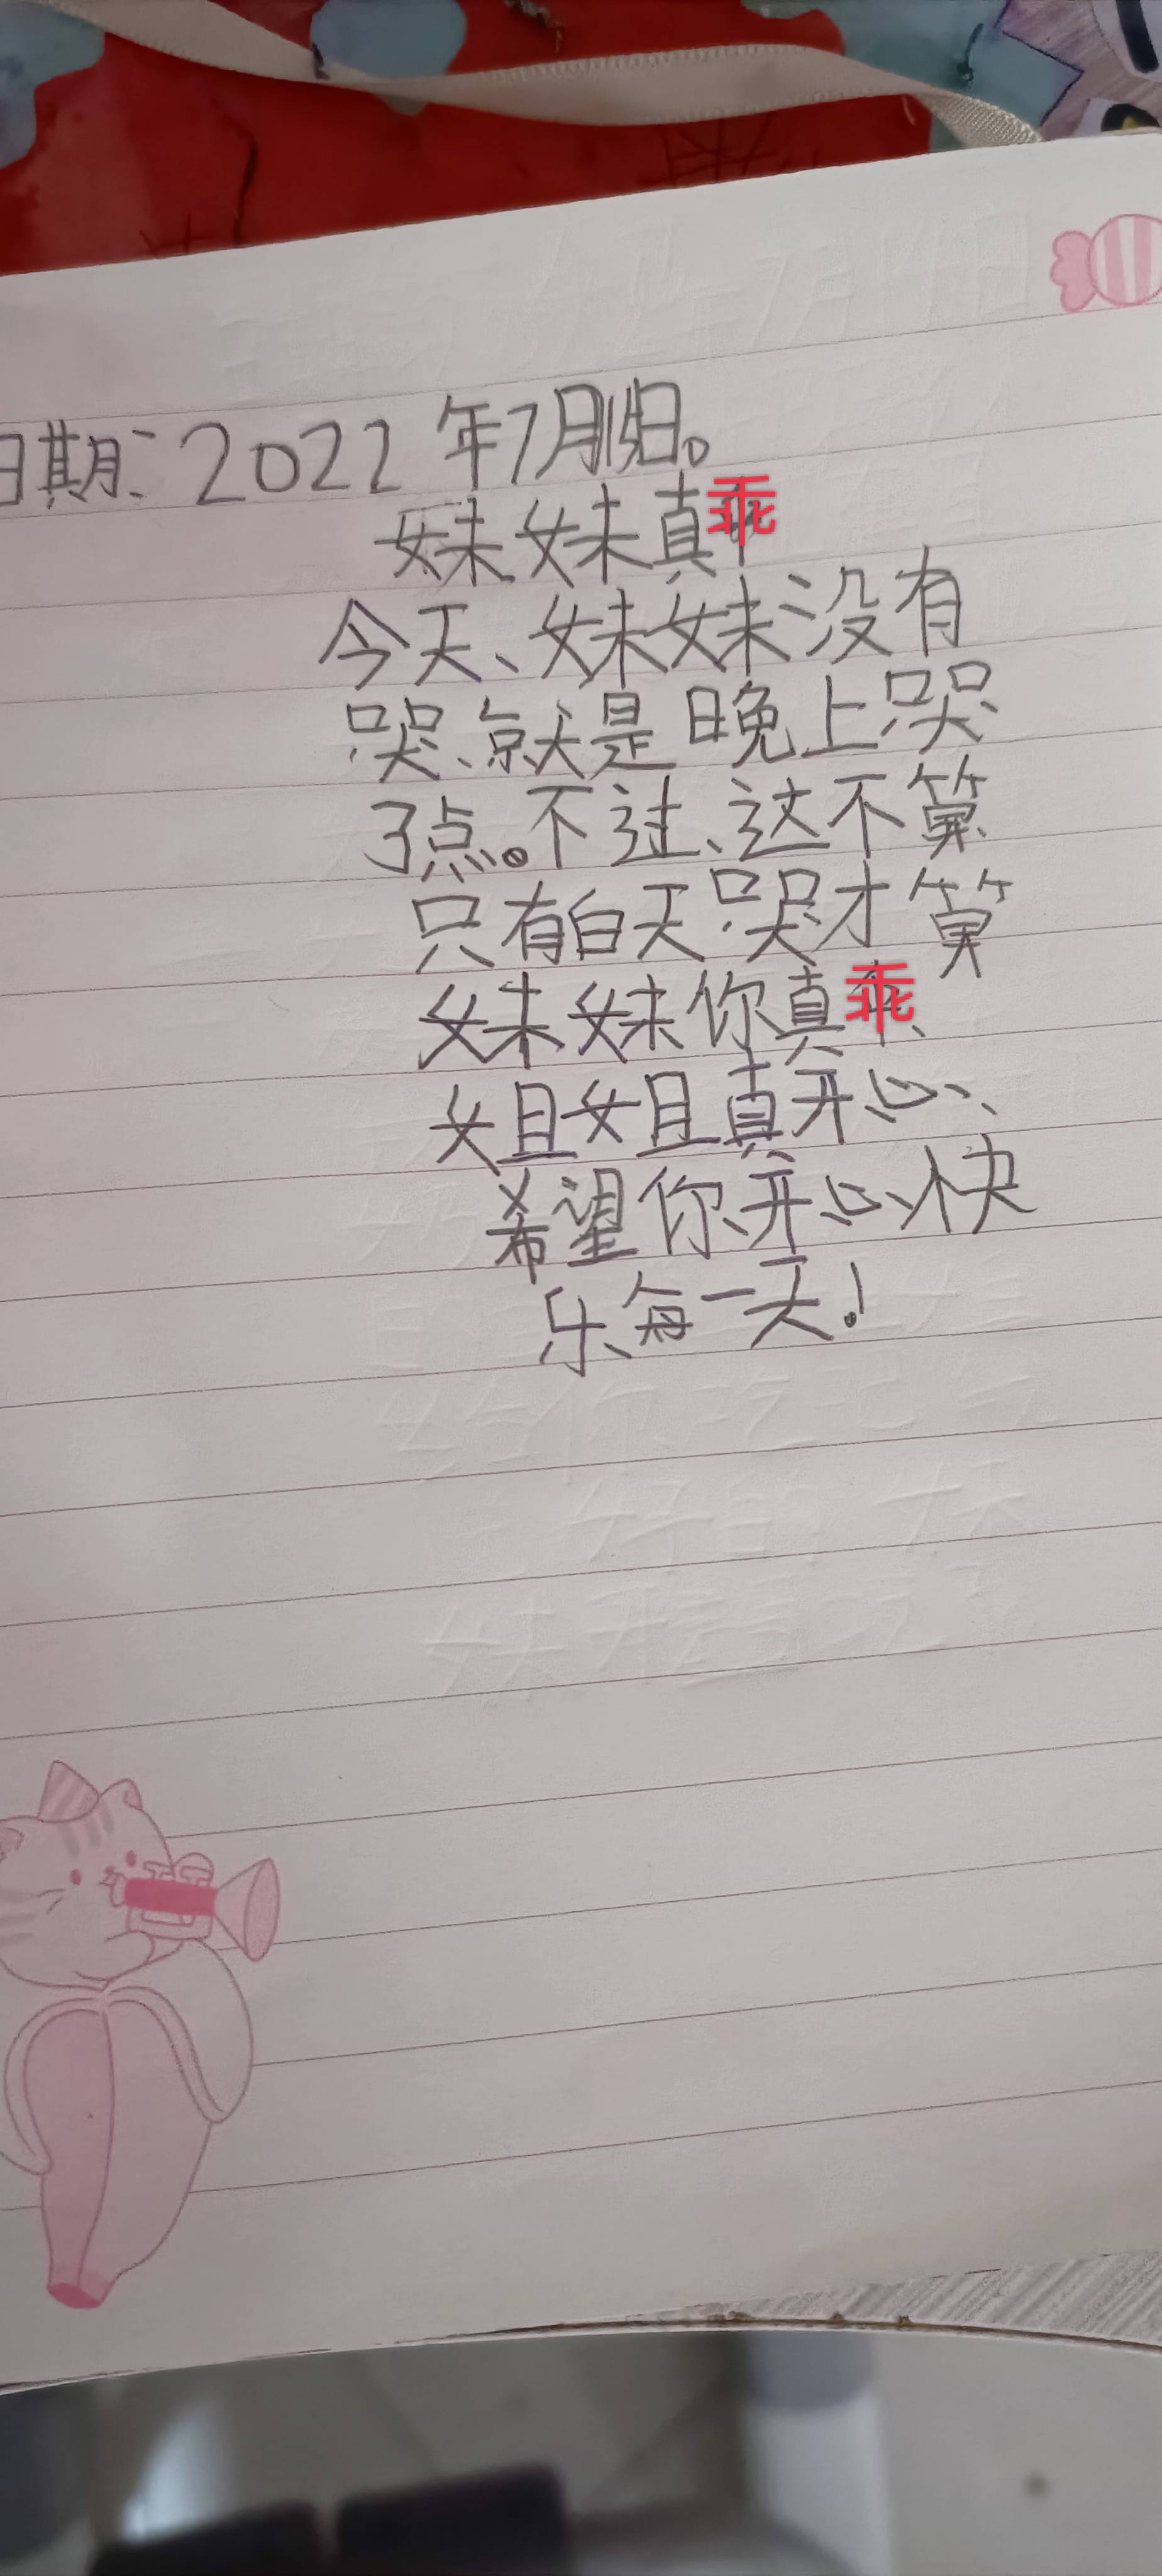 日期:2022年7月15日。
妹妹真乖
今天、妹妹没有
哭、就是晚上哭
了点。不过、这不算
只有白天哭才算
妹妹你真乖、
姐姐真开心、
希望你开心快
乐每一天!